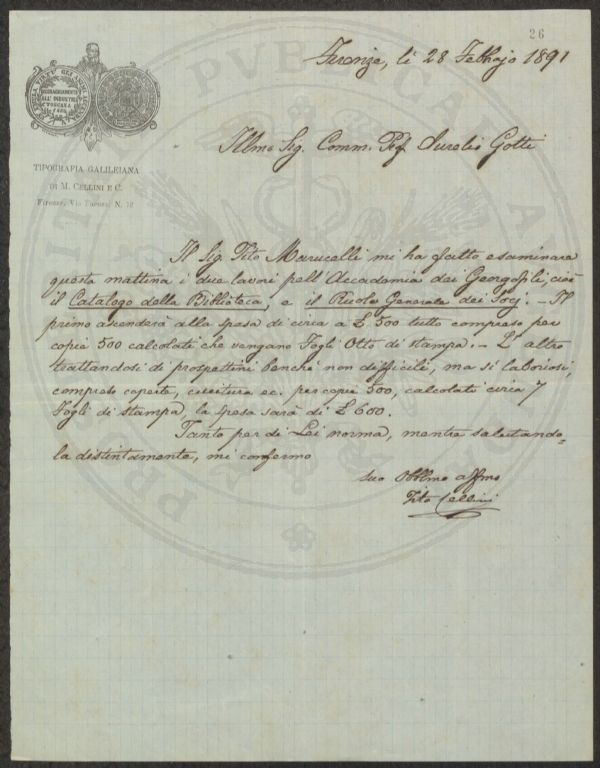 26
Firenze, li 28 Febbrajo 1891
TIPOGRAFIA GALILEIANA
DI M. CELLINI E C.
Firenze, Via Faenza, N. 72
Illmo Sig. Comm. Prof. Aurelio Gotti
Il Sig. Tito Marucelli mi ha fatto esaminare
questa mattina i due lavori pell'Accadomia dei Georgofili, cioè
il Catalogo della Biblioteca, e il Ruolo Generale dei Socj. - Il
primo ascenderà alla spesa di circa a £ 500 tutto compreso per
copie 500 calcolati che vengano Fogli Otto di stampa. - L'altro
trattandosi di prospettini benchè non difficili, ma sì laboriosi,
compreso coperte, cucitura ec. per copie 500, calcolati circa 7
Fogli di stampa, la spesa sarà di £ 600.
Tanto per di Lei norma, mentre salutando=
la distintamente, mi confermo
Suo Obblmo affmo
Tito Cellini